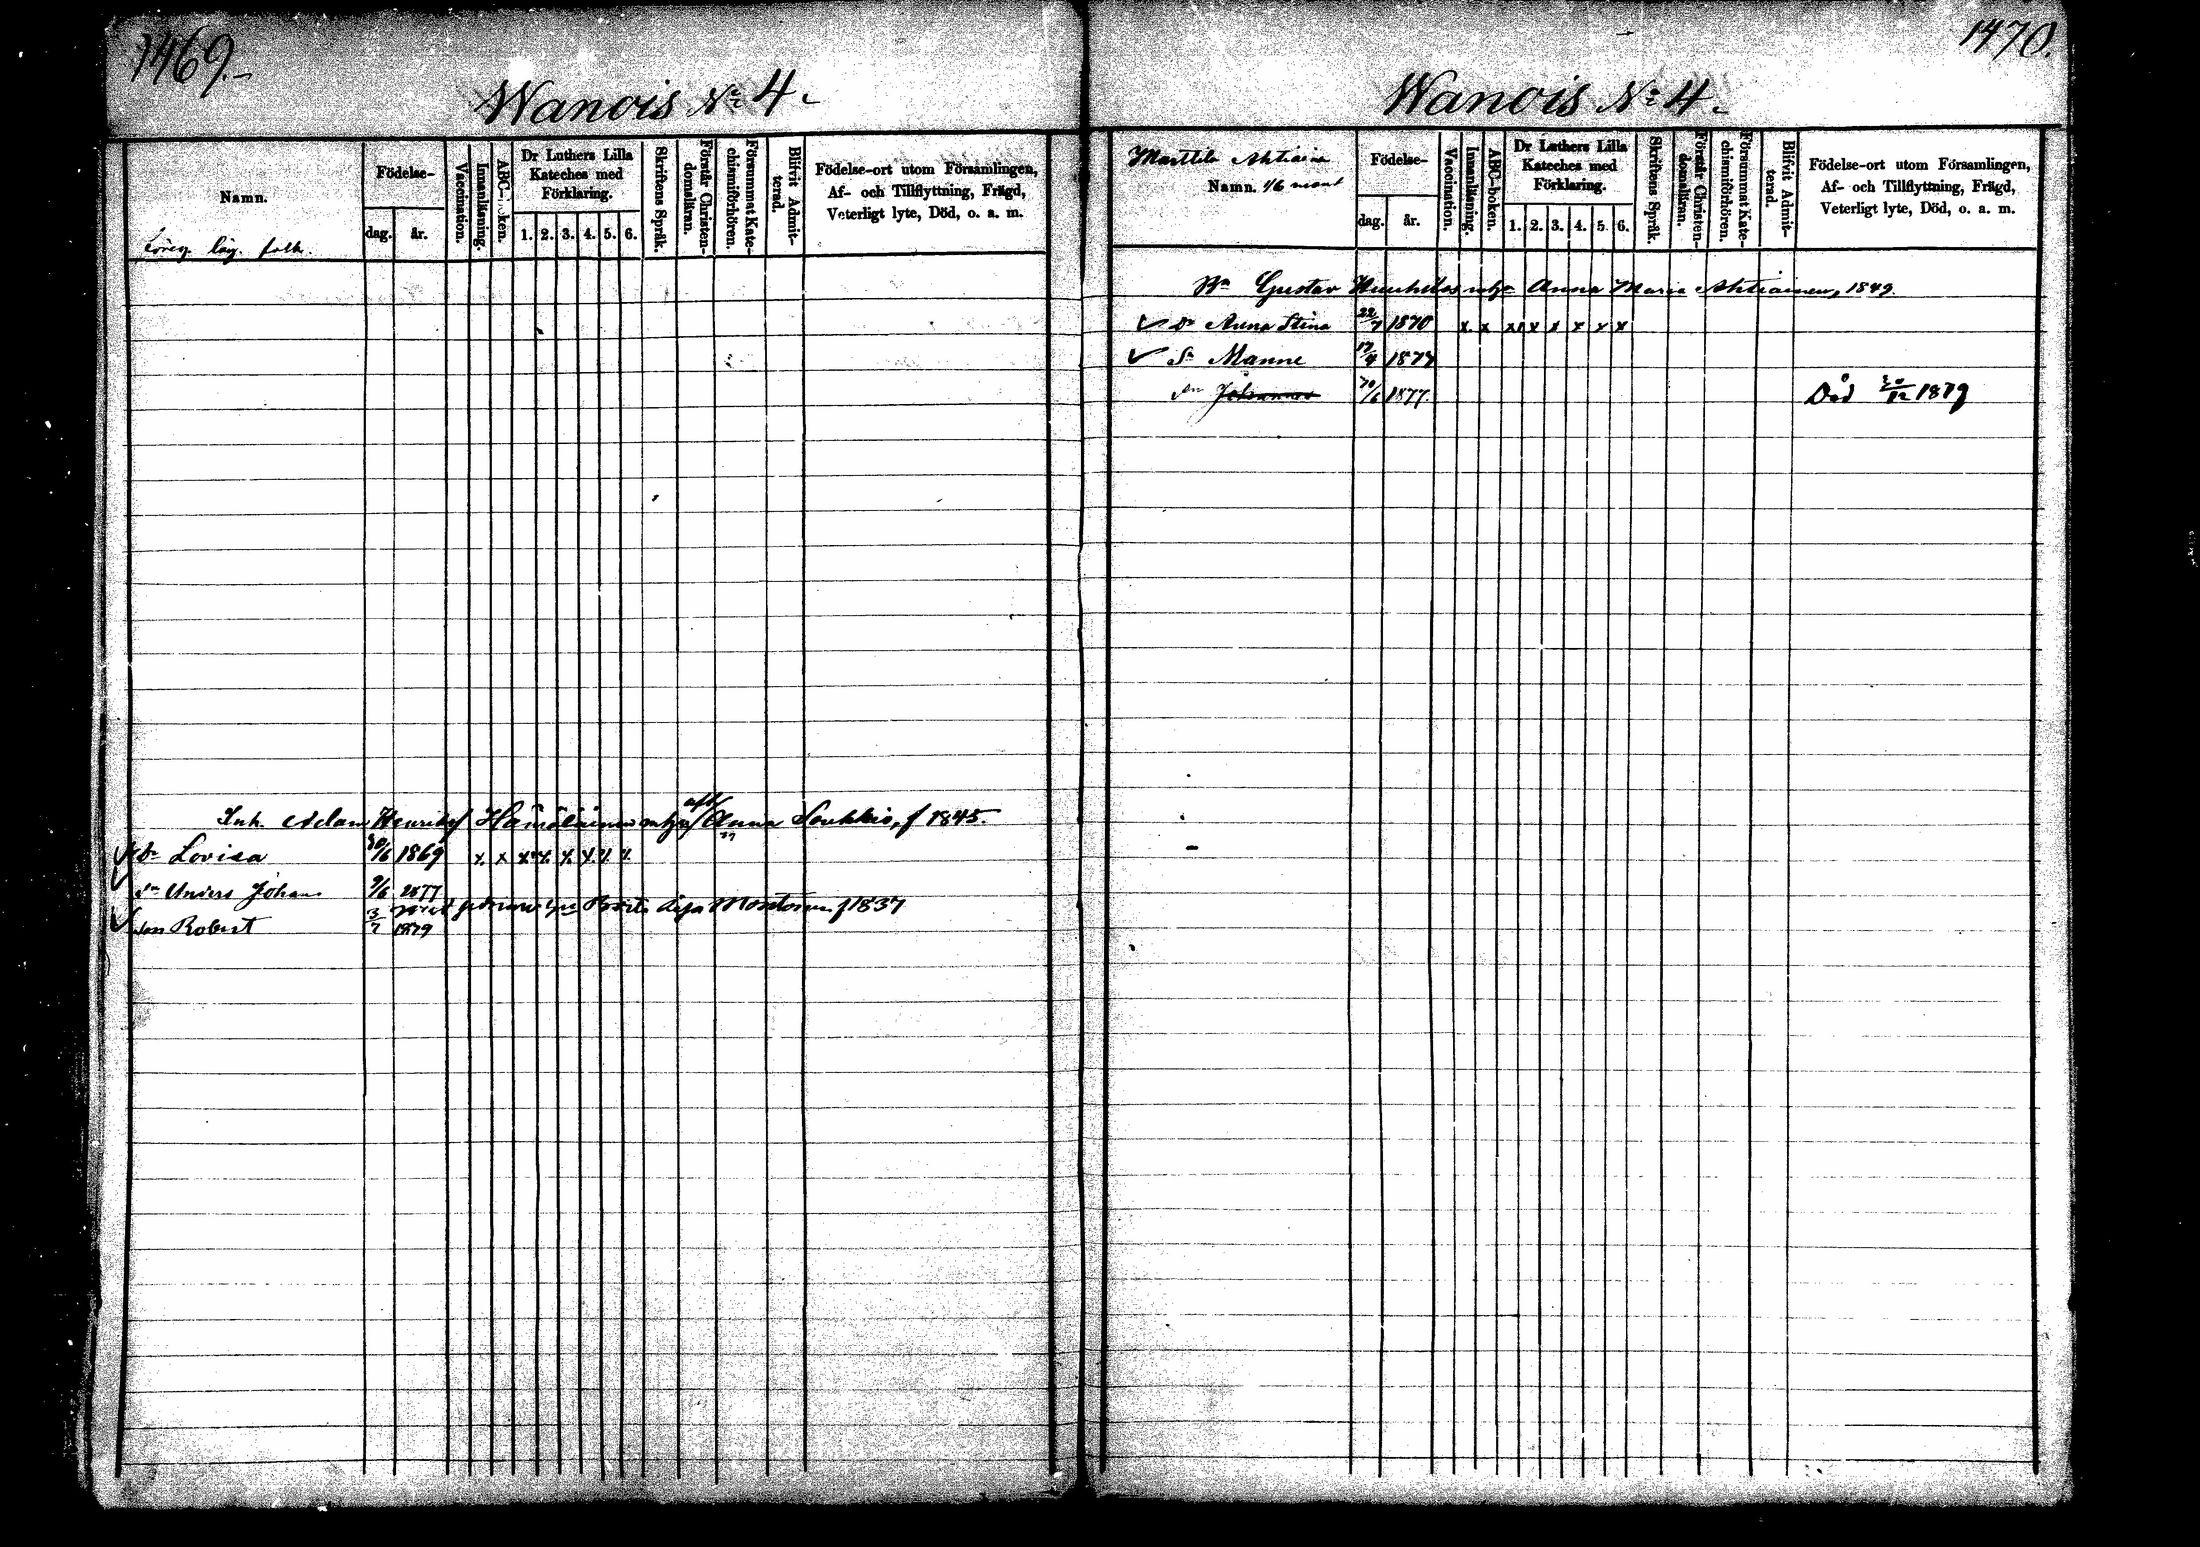 1469.
Wanois No 4.
Namn.
Födelse-
dag. år.
Vaccination.
Innanläsning.
ABC-boken.
Dr Luthers Lilla
Kateches med
Förklaring.
1. 2. 3. 4. 5. 6.
Skriftens Språk.
Förstår Christen-
domsläran.
Försummat Kate-
chismiförhören.
Blifvit Admit-
terad.
Födelse-ort utom Församlingen,
Af- och Tillflyttning, Frägd,
Veterligt lyte, Död, o. a. m.
folk.
Inh. Adam Henriks Hämäläinen Anna Soukkio, f 1845.
Dr Lovisa 30/6 1869 x x x x x x x x
Sn Anders Johan 9/6 1877
f 1837
son Robert 3/7 1879
1470.
Wanois No 4.
Marttila Ahtiain
Namn. 1/6 mant
Födelse-
dag. år.
Vaccination.
Innanläsning.
ABC-boken.
Dr Luthers Lilla
Kateches med
Förklaring.
1. 2. 3. 4. 5. 6.
Skriftens Språk.
Förstår Christen-
domsläran.
Försummat Kate-
chismiförhören.
Blifvit Admit-
terad.
Födelse-ort utom Församlingen,
Af- och Tillflyttning, Frägd,
Veterligt lyte, Död, o. a. m.
Gustav Anna Maria Ahtiainen, 1849.
Dr Anna Stina 22/7 1870 x x x x x x x x
Sn Manne 17/4 1874
Sn Johannes /6 1877. Död 30/12 1879